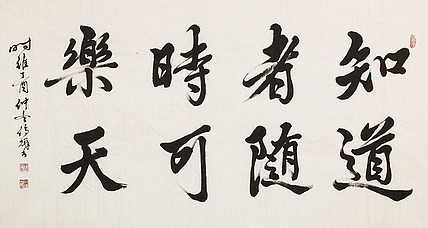 知道
者随
時可
樂天